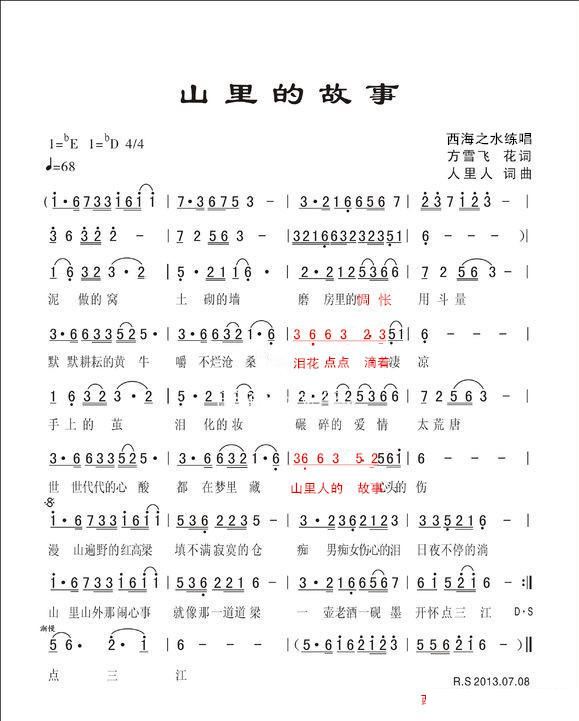 山里的故事
1=ᵇE 1=ᵇD 4/4
♩=68
西海之水练唱
方雪飞 花词
人里人 词曲
(1·6733161 1 | 7·36753 - | 3·2166567 | 237123 - |
36322 - | 72563 - | 321663232351 | 6 - - - )|
16323·2 | 5·2116· | 2·2125366 | 72563 - |
泥 做的窝 土 砌的墙 磨 房里的惆 怅 用斗量
3·6633525· | 3·66321·6 | 3663 2351 | 6 - - - |
默 默耕耘的黄 牛 嚼 不烂沧 桑 泪花点点 滴着凄 凉
16323· | 52116· | 2·2125366 | 72563 - |
手上的 茧 泪 化的妆 碾 碎的 爱 情 太荒唐
3·6633525· | 3·66321·6 | 3663 52561 | 6 - - - |
世 世代代的心 酸 都 在梦里 藏 山里人的 故事心头的 伤
1·6733161 | 536 2256 - | 3·2362123 | 536222 - |
漫 山遍野的红高粱 填不满寂寞的仓 痴 男痴女伤心的泪 日夜不停的淌
1·6733161 | 5362256 - | 3·2166567 | 61521 - :‖
山 里山外那闹心事 就像那一道道梁 一 壶老酒一砚 墨 开怀点三 江 D·S
渐慢
56· 2· | 6 - - - | (5·6165123 | 1·6122 - )‖
点 三 江
R.S 2013.07.08